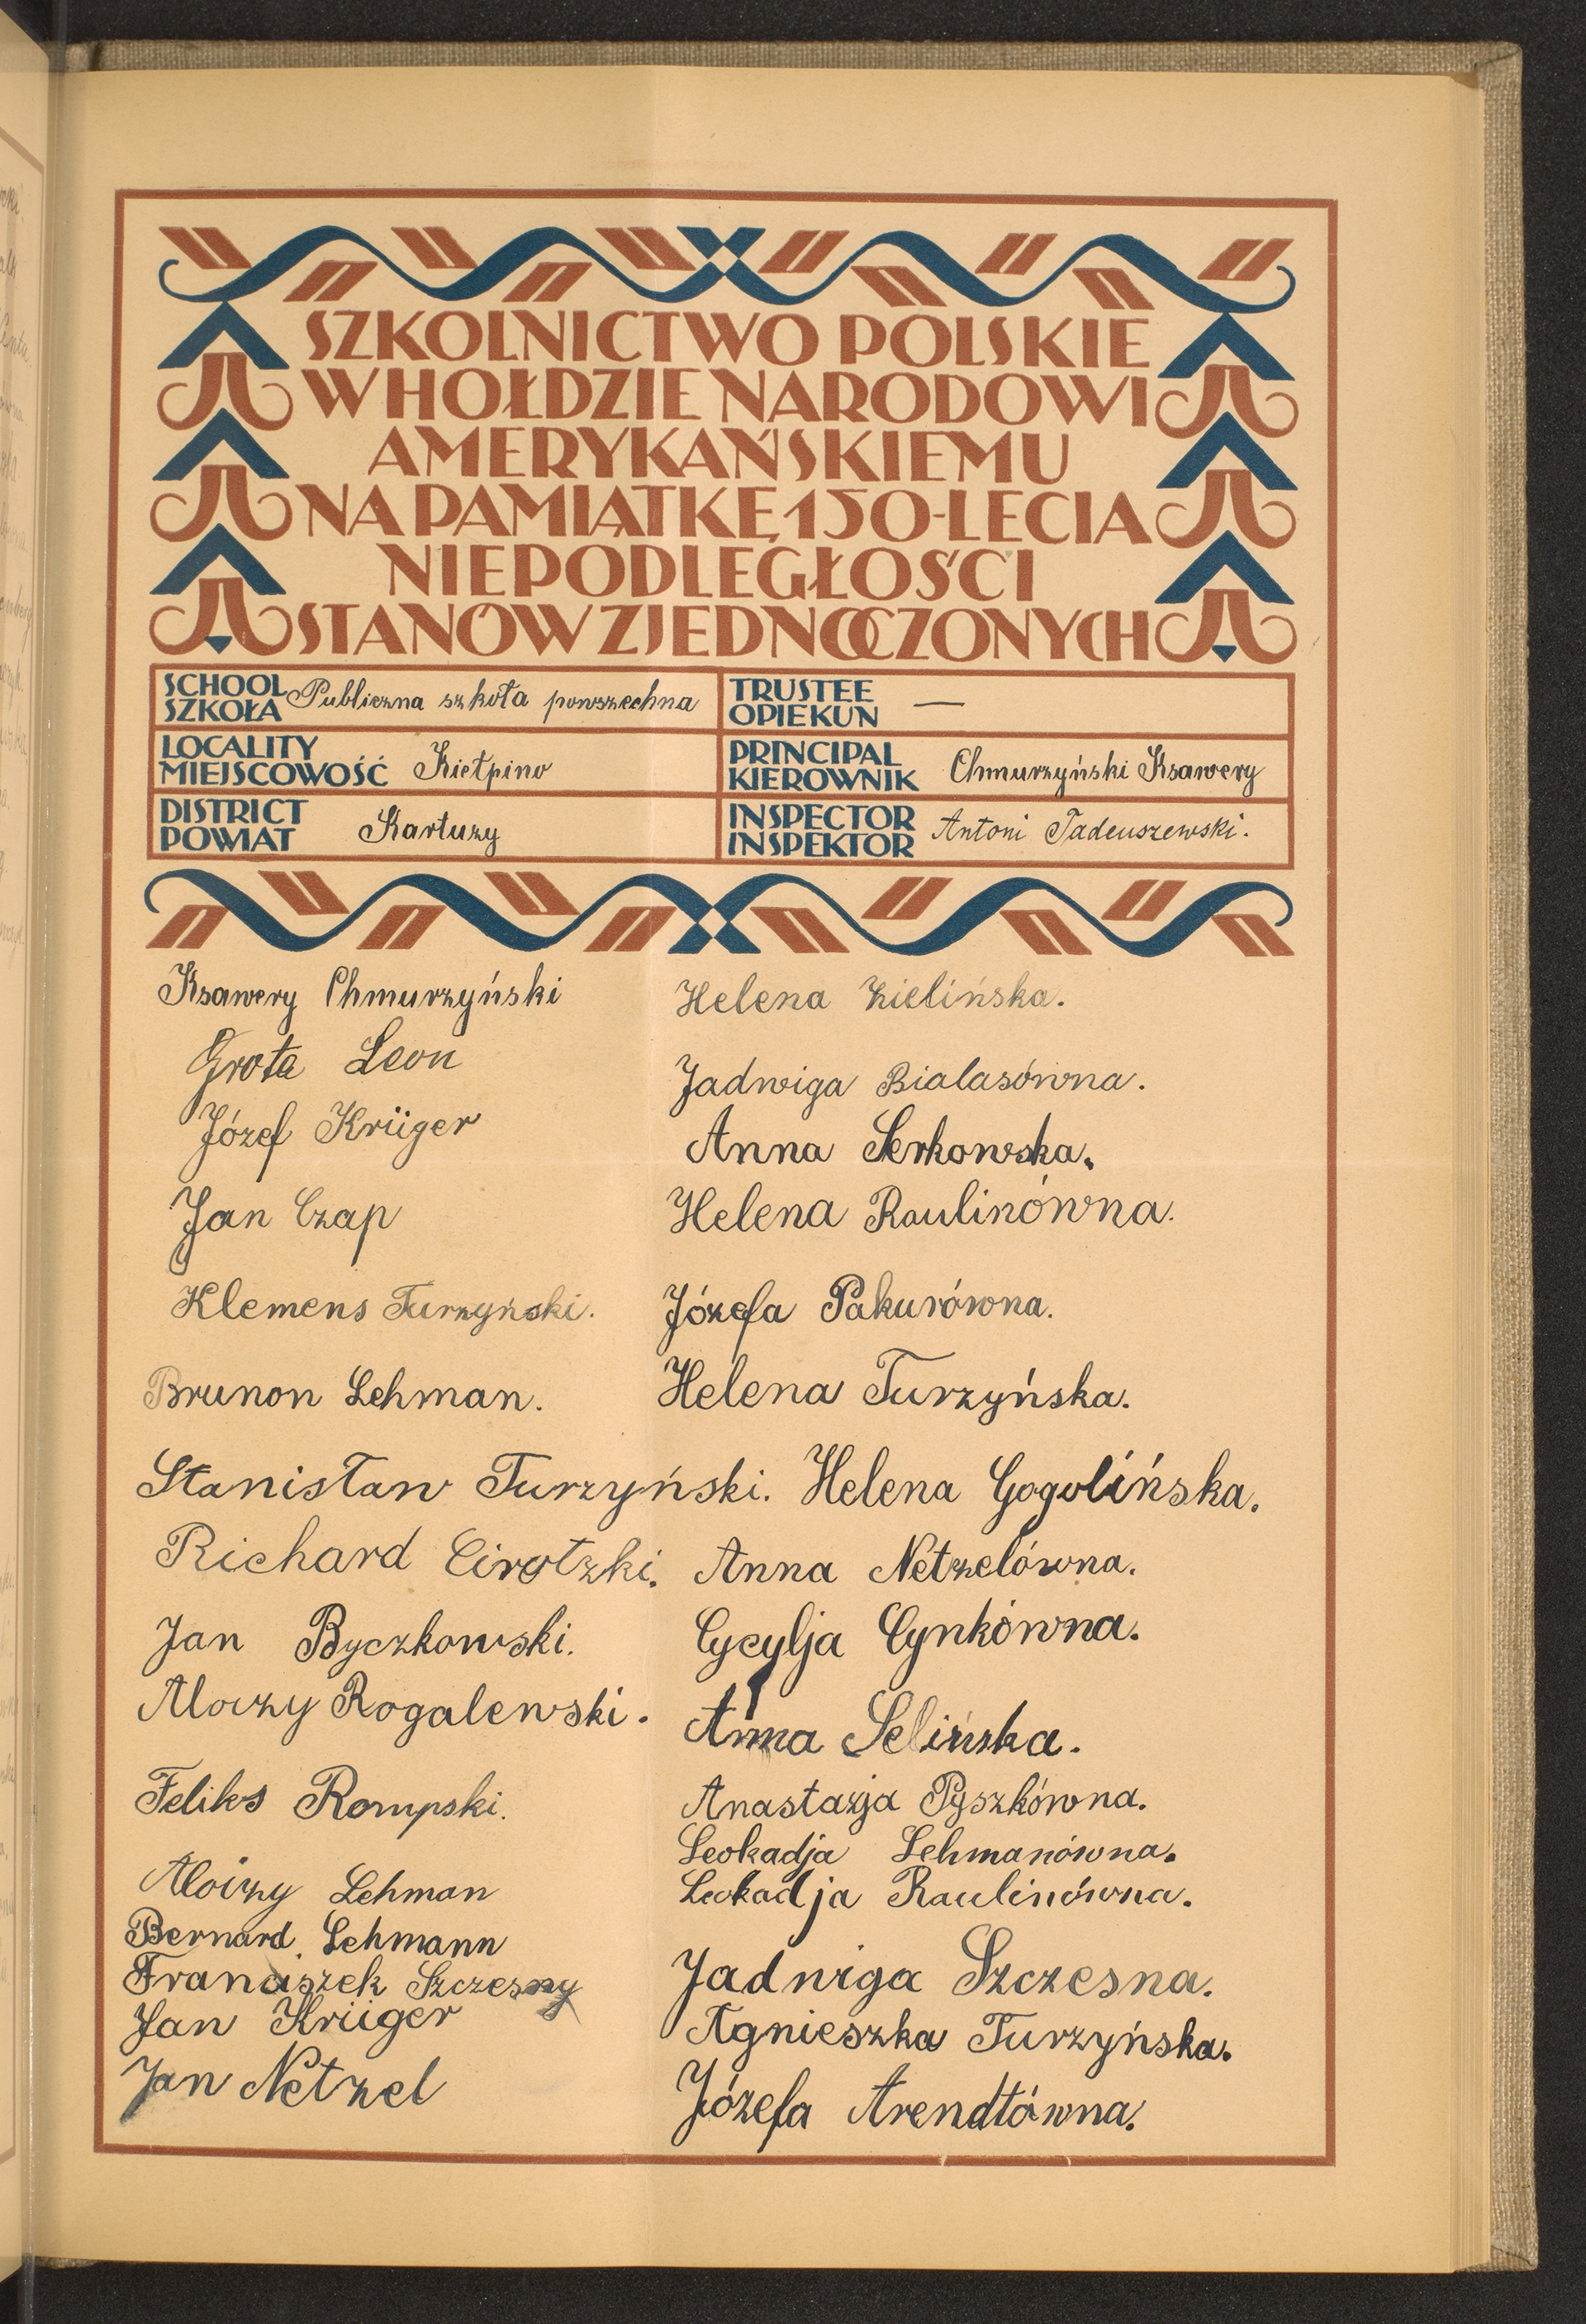 SZKOLNICTWO POLSKIE
W HOŁDZIE NARODOWI
AMERYKAŃSKIEMU
NA PAMIĄTKĘ 150-LECIA
NIEPODLEGŁOŚCI
STANÓW ZJEDNOCZONYCH
SCHOOL
SZKOŁA
Publiczna szkoła powszechna
TRUSTEE
OPIEKUN
—
LOCALITY
MIEJSCOWOŚĆ
Kiełpino
PRINCIPAL
KIEROWNIK
Chmurzyński Ksawery
DISTRICT
POWIAT
Kartuzy
INSPECTOR
INSPEKTOR
Antoni Tadeuszewski.
Ksawery Chmurzyński
Grota Leon
Józef Krüger
Jan Czap
Klemens Turzyński.
Brunon Lehman.
Stanisław Turzyński.
Richard Cirotzki.
Jan Byczkowski.
Alojzy Rogalewski.
Feliks Rompski.
Alojzy Lehman
Bernard Lehmann
Franciszek Szczesny
Jan Krüger
Jan Netzel
Helena Zielińska.
Jadwiga Bialasówna.
Anna Serkowska.
Helena Raulinówna.
Józefa Pakurówna.
Helena Turzyńska.
Helena Gogolińska.
Anna Netzelówna.
Cycylja Cynkówna.
Anna Selińska.
Anastazja Pyszkówna.
Leokadja Lehmanówna.
Leokadja Raulinówna.
Jadwiga Szczesna.
Agnieszka Turzyńska.
Józefa Arendtówna.